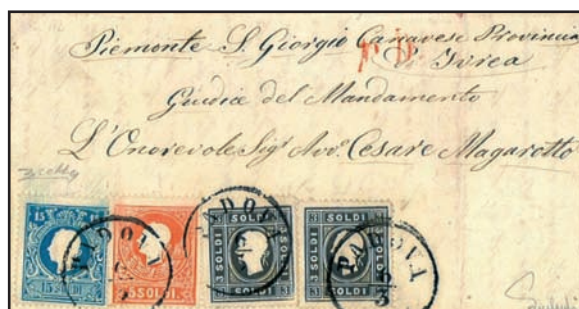 Piemonte S. Giorgio Canavese Provincia
P.D.
di Ivrea
Giudice del Mandamento
L'Onorevole Sigr Avvo Cesare Magarotto
15 SOLDI
5 SOLDI
3 SOLDI
SOLDI
3 SOLDI
SOLDI
PADOVA
6/3
PADOVA
6/3
PADOVA
6/3